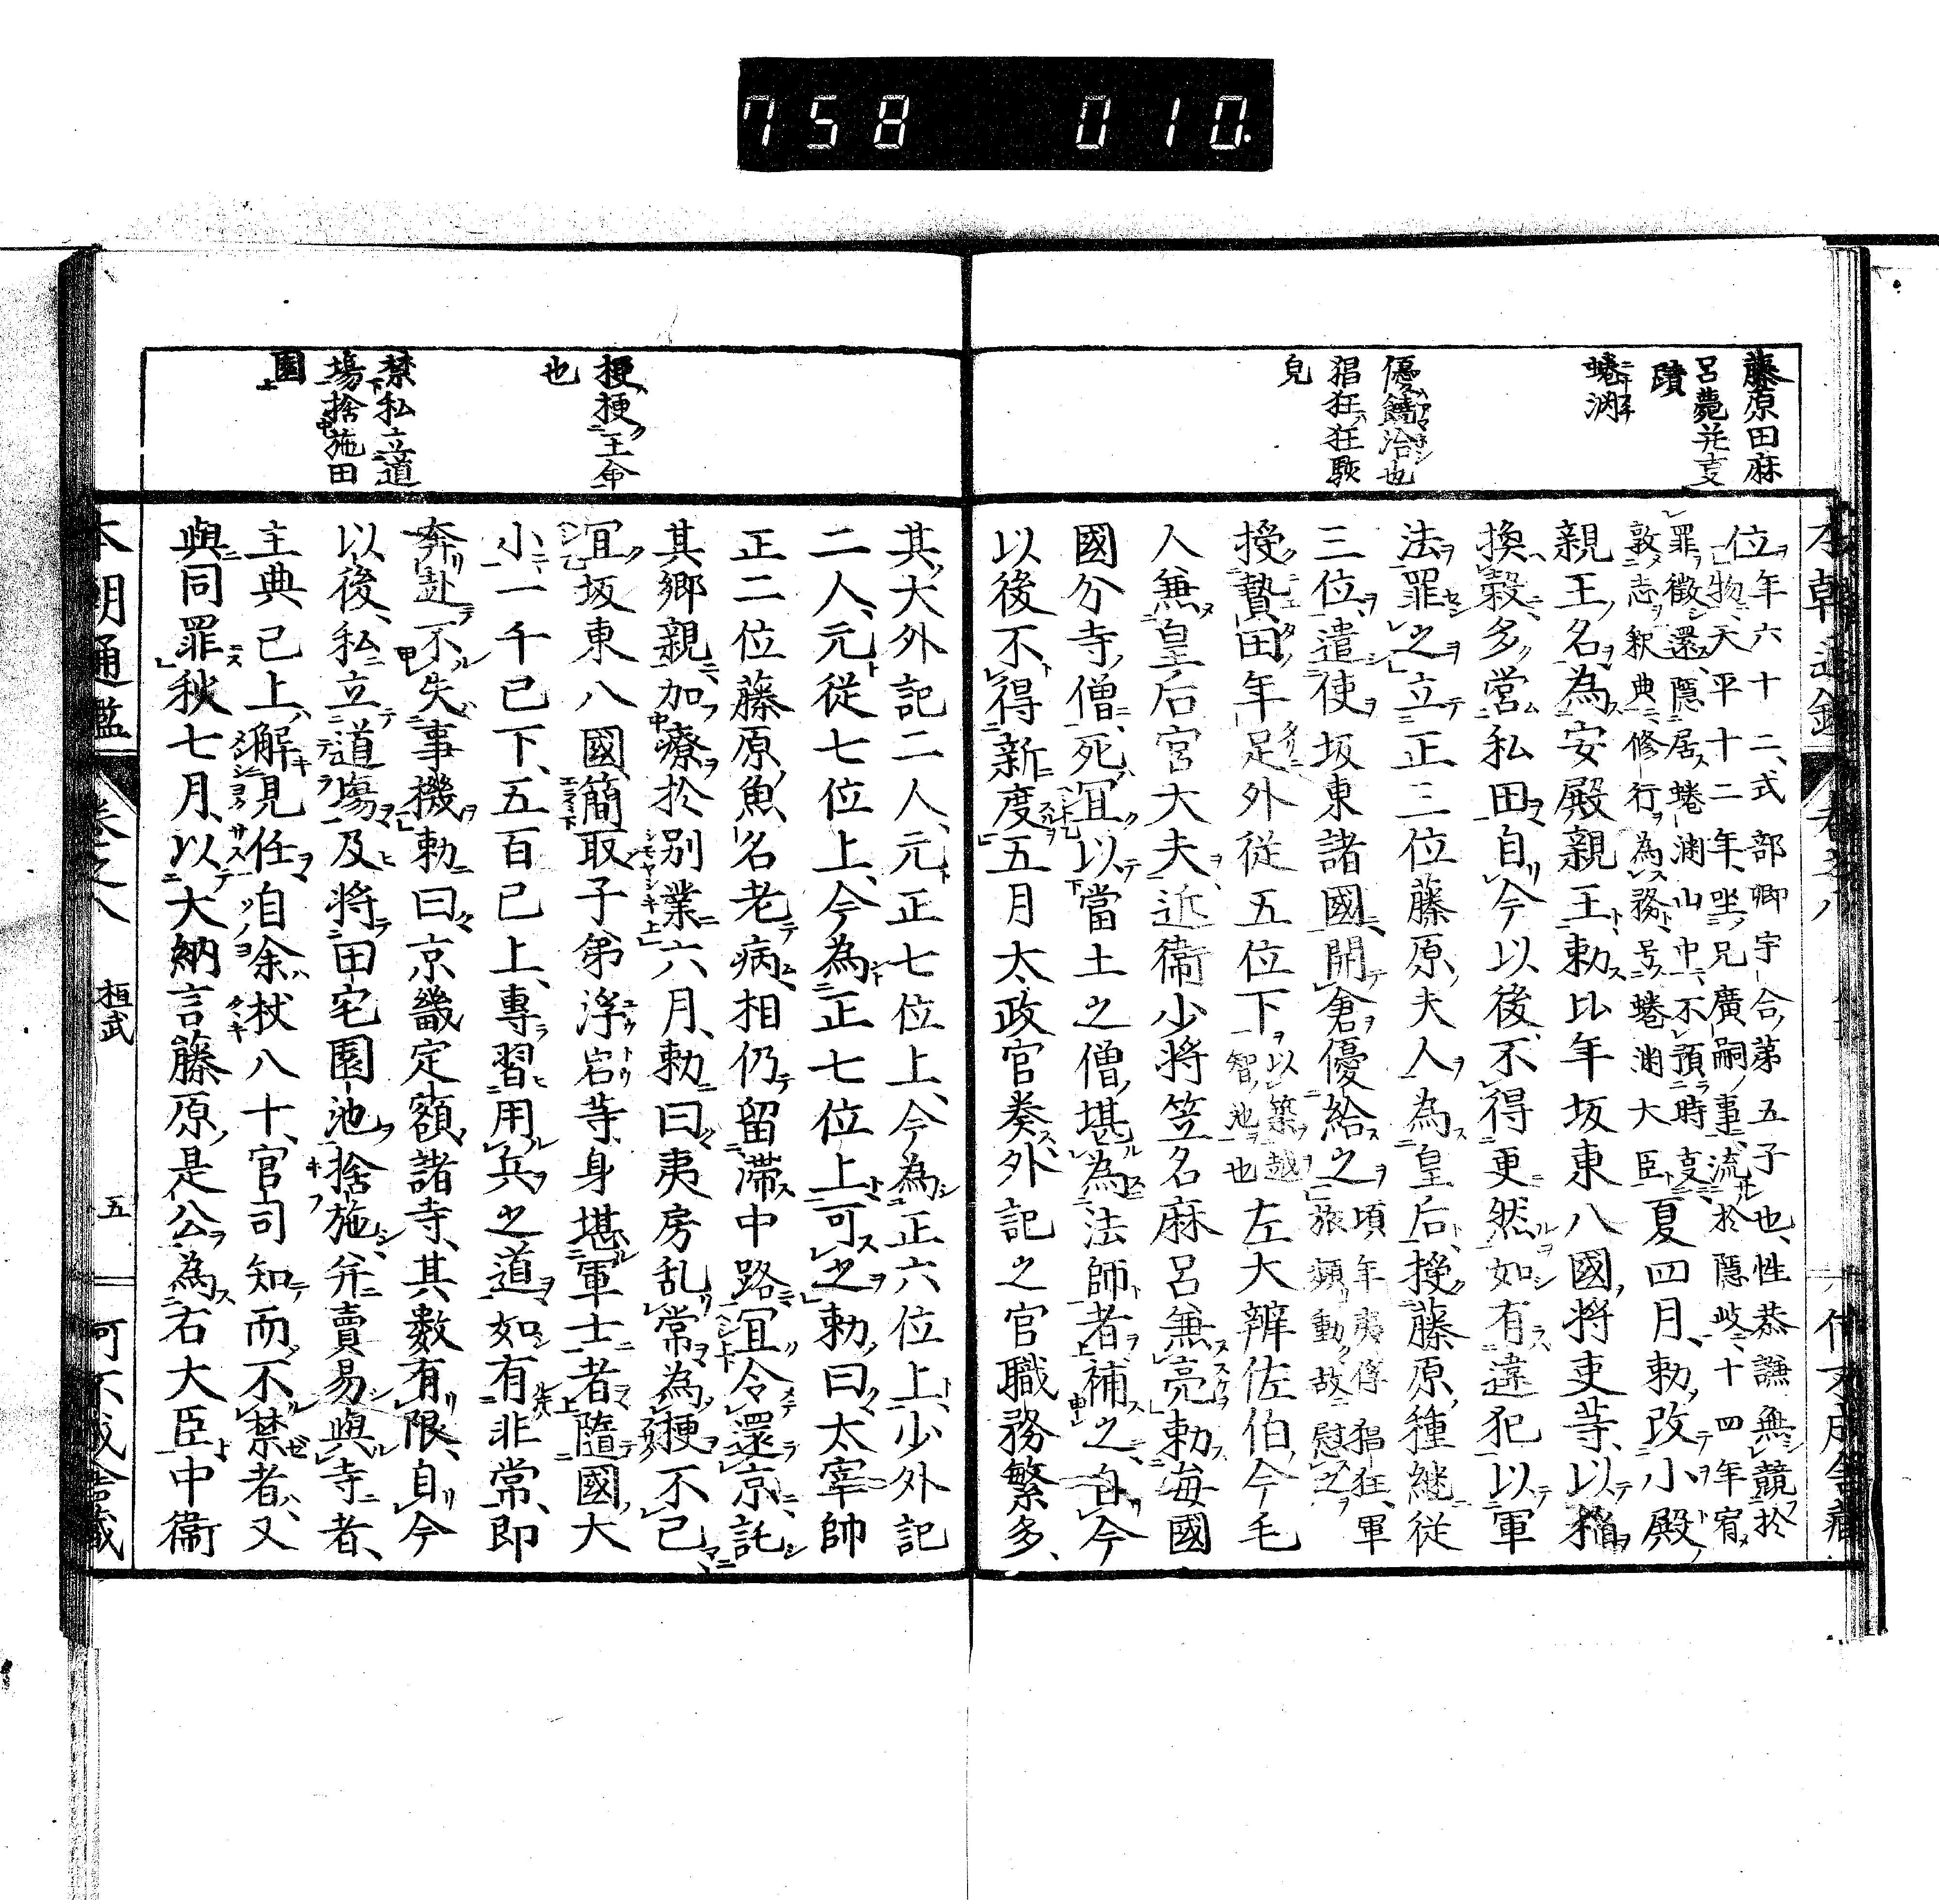 758 010.
藤原田麻
呂薨并支
蹟
蜷渕
優饒洽也
猖狂狂駭
皃
位年六十二、式部卿宇合第五子也、性恭謙無競於
物、天平十二年、坐兄廣嗣事、流於隱岐、十四年宥
罪徵還、隱居蜷渕山中、不預時支、
敦志釈典、修行為務、号蜷渕大臣
夏四月、勅、改小殿
親王名、為安殿親王、勅、比年坂東八國、將吏等、以稲
換穀、多營私田、自今以後、不得更然、如有違犯、以軍
法罪之、立正三位藤原夫人為皇后、授藤原種継従
三位、遣使坂東諸國、開倉優給之
頃年夷俘猖狂、軍
旅頻動、故慰之
授贄田年足外從五位下
以築越
智池也
左大辨佐伯今毛
人兼皇后宮大夫、近衛少將笠名麻呂兼亮、勅、每國
國分寺僧、死、冝以當土之僧、堪為法師者補之、自今
以後不得新度、五月、太政官奏、外記之官、職務繁多、
其大外記二人、元正七位上、今為正六位上、少外記
二人、元從七位上、今為正七位上、可之、勅曰、太宰帥
正二位藤原魚名、老病相仍、留滯中路、冝令還京、託
其鄉親、加療於別業、六月、勅曰、夷虜乱常、為梗不已
冝坂東八國、簡取子弟浮宕等、身堪軍士者、隨國大
小、一千已下、五百已上、專習用兵之道、如有非常、即
奔赴不失事機、勅曰、京畿定額諸寺、其數有限、自今
以後、私立道場、及將田宅園池捨施、并賣易與寺者、
主典已上、解見任、自余杖八十、官司知而不禁者、又
與同罪、秋七月、以大納言藤原是公為右大臣中衛
梗梗王命
也
禁私立道
場捨施田
園
本朝通鑑 卷之八 桓武 五